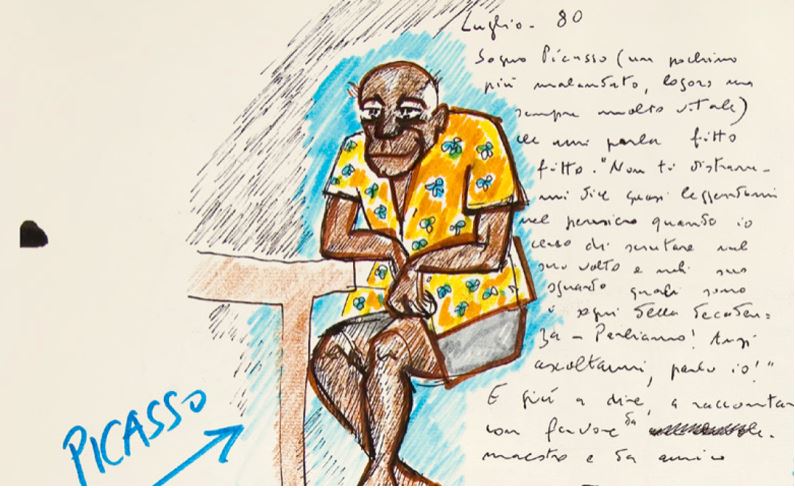 Luglio - 80
Sogno Picasso (un pochino
più malandato, logoro ma
sempre molto vitale)
che mi parla fitto
fitto. "Non ti distrarre
mi dice quasi leggendomi
nel pensiero quando io
cerco di scrutare nel
suo volto e nel suo
sguardo quali sono
i segni della decaden=
za - Parliamo! Anzi
ascoltami, parlo io!"
E giù a dire, a raccontare
con fervore da
maestro e da amico
PICASSO